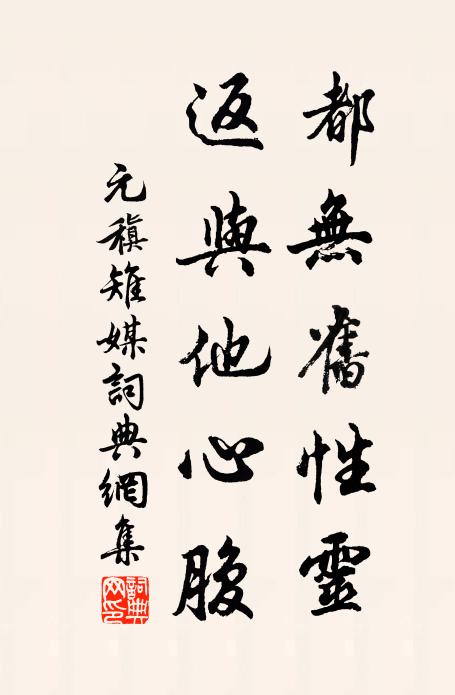 都無舊性靈
返與他心腹
元稹雉媒詞典網集
詞典網印